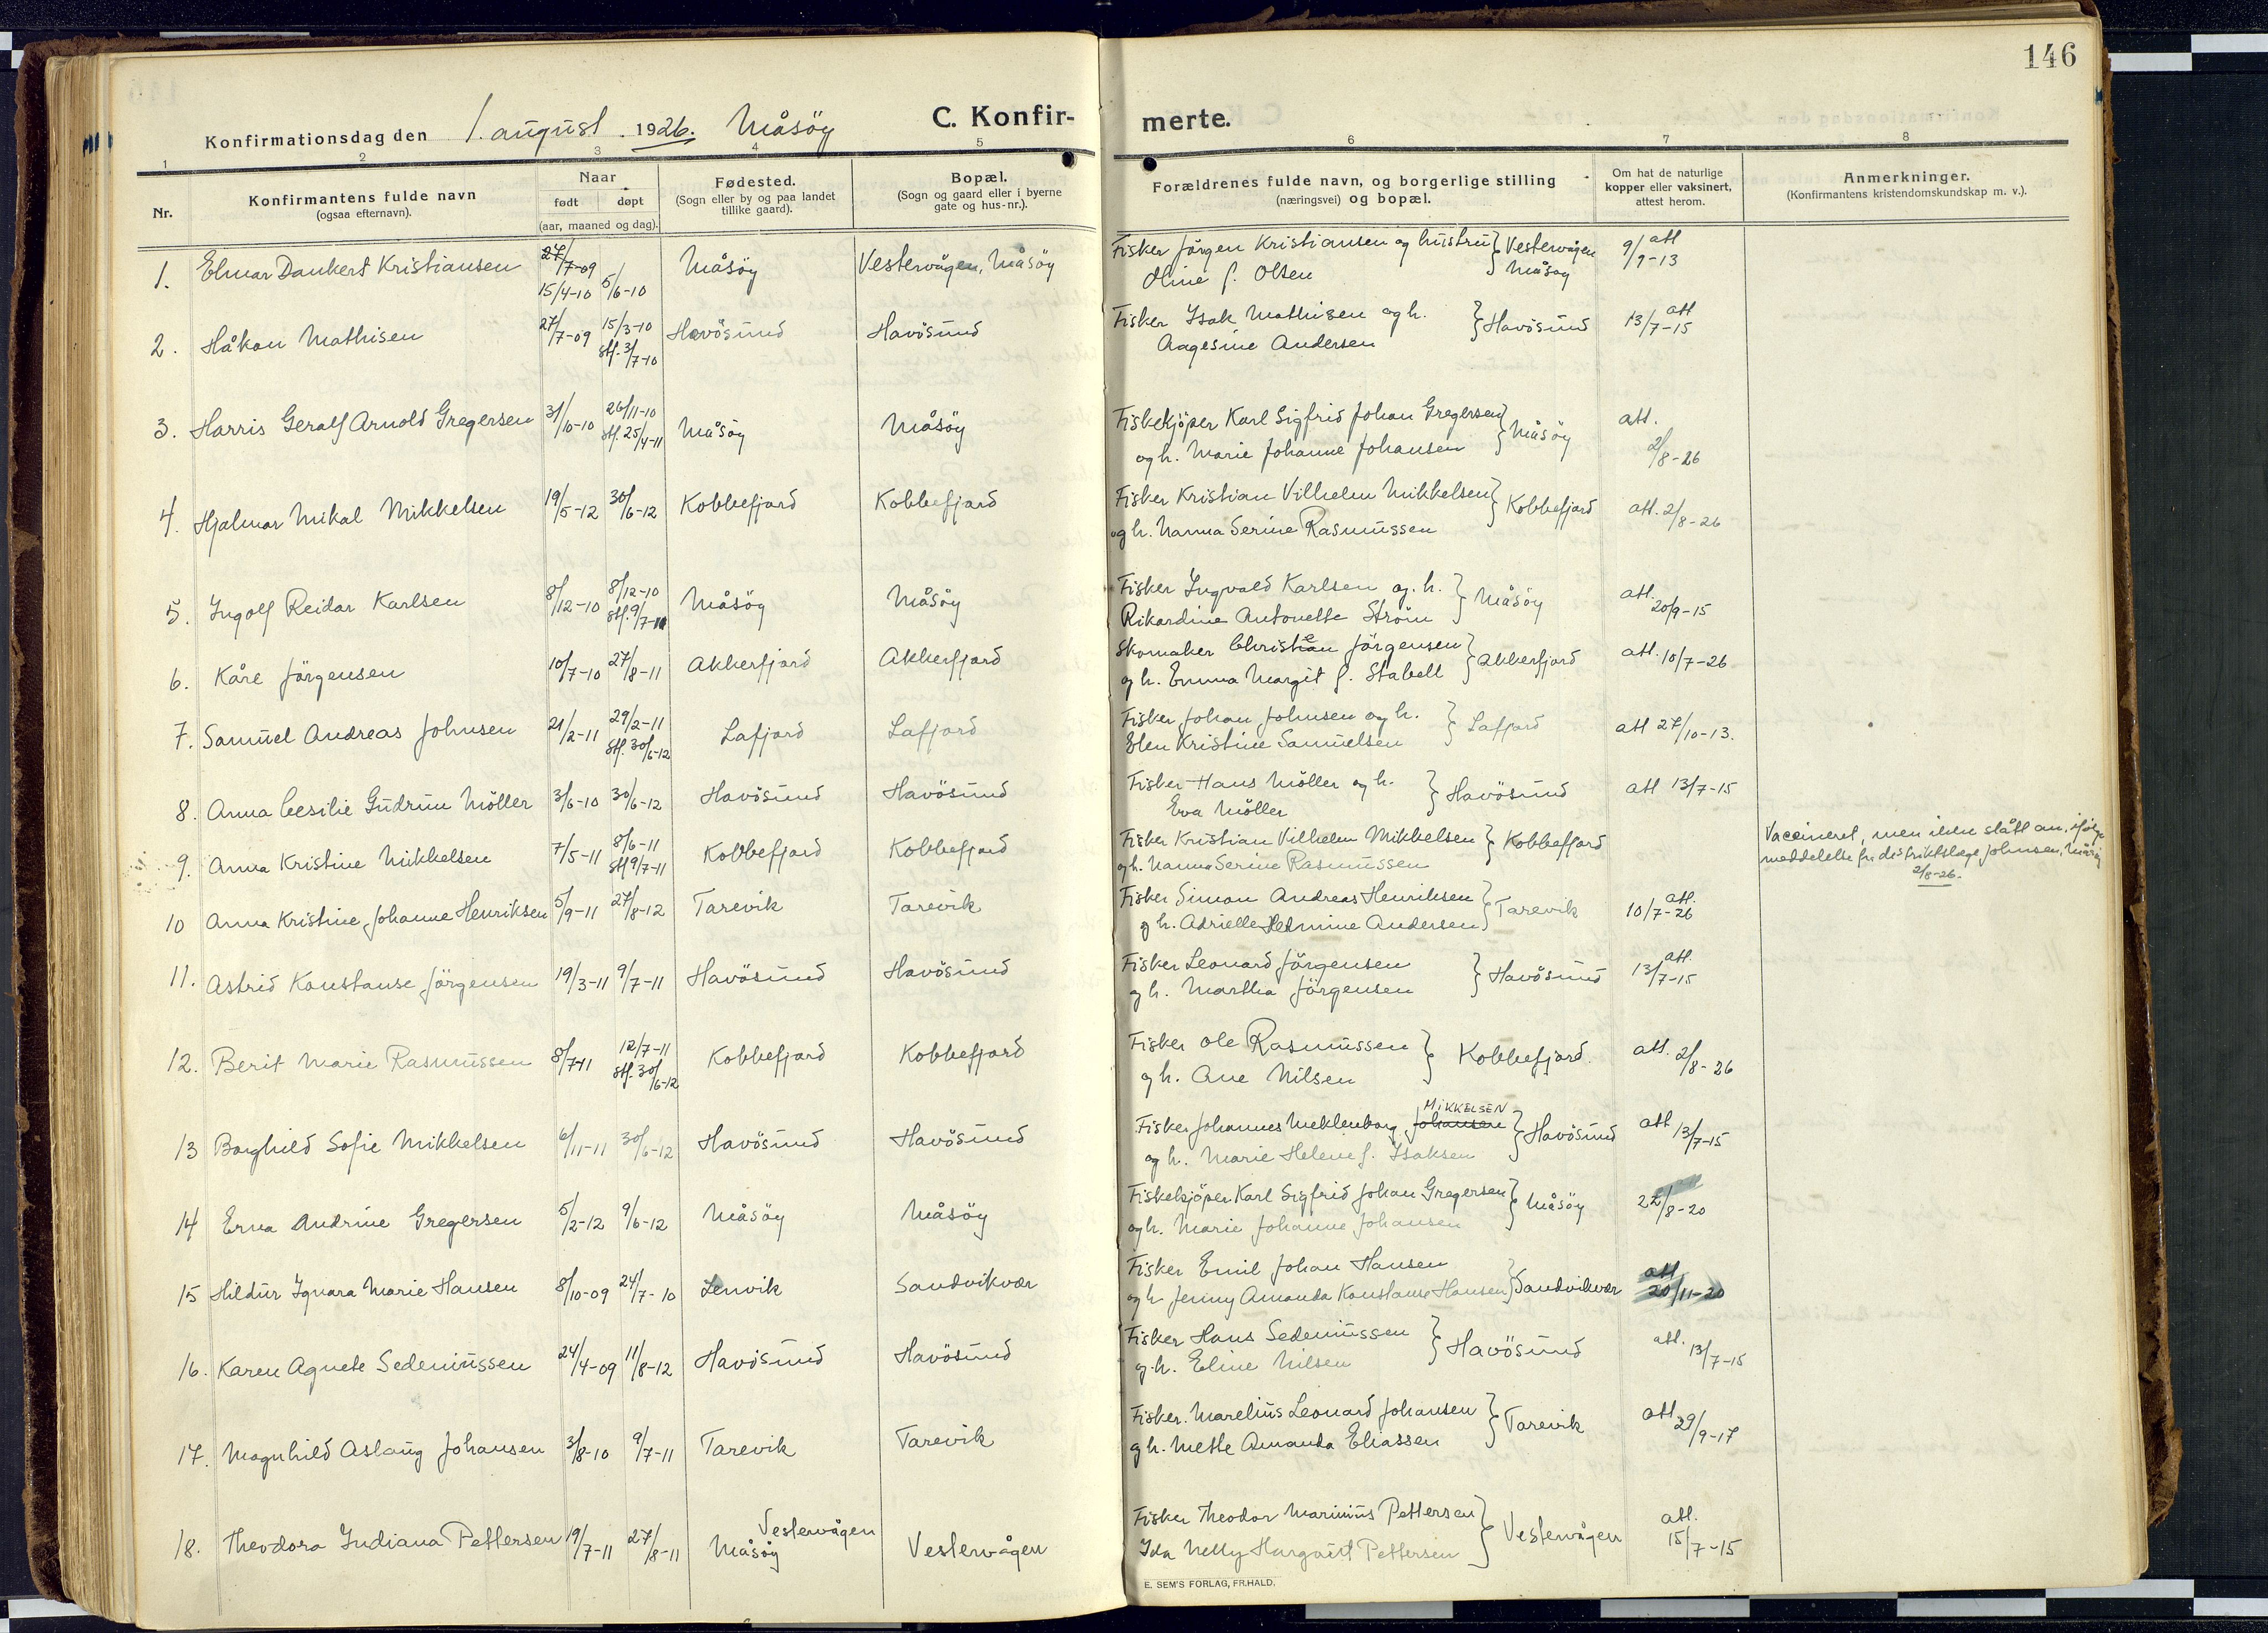 146
Konfirmationsdag den 1. august 1926. Måsöy C. Konfirmerte.
1 2 3 4 5 6 7 8
Nr. Konfirmantens fulde navn (ogsaa efternavn). Naar født døpt (aar, maaned og dag). Fødested. (Sogn eller by og paa landet tillike gaard). Bopæl. (Sogn og gaard eller i byerne gate og hus-nr.). Forældrenes fulde navn, og borgerlige stilling (næringsvei) og bopæl. Om hat de naturlige kopper eller vaksinert, attest herom. Anmerkninger. (Konfirmantens kristendomskundskap m. v.).
1. Elmar Dankert Kristiansen 27/7-09 15/4-10 5/6-10 Måsöy Vestervågen, Måsöy Fisker Jörgen Kristiansen og hustru } Vestervågen 9/9-13 att
Oline f. Olsen Måsöy
2. Håkon Mathisen 27/7-09 15/3-10 stf. 3/7-10 Havösund Havösund Fisker Isak Mathisen og h. } Havösund 13/7-15 att
Aagesine Andersen
3. Harris Geralf Arnold Gregersen 31/10-10 26/11-10 stf. 25/4-11 Måsöy Måsöy Fiskekjöper Karl Sigfrid Johan Gregersen } Måsöy att. 2/8-26
og h. Marie Johanne Johansen
4. Hjalmar Mikal Mikkelsen 19/5-12 30/6-12 Kobbefjord Kobbefjord Fisker Kristian Vilhelm Mikkelsen } Kobbefjord att. 2/8-26
og h. Nanna Serine Rasmussen
5. Ingolf Reidar Karlsen 8/12-10 8/12-10 stf. 9/7-11 Måsöy Måsöy Fisker Ingvald Karlsen og h. } Måsöy att. 20/9-15
Rikardine Antonette Ström
6. Kåre Jörgensen 10/7-10 27/8-11 Akkerfjord Akkerfjord Skomaker Christian Jörgensen } Akkerfjord att. 10/7-26
og h. Emma Margit f. Stabell
7. Samuel Andreas Johnsen 21/2-11 29/2-11 stf. 30/6-12 Lafjord Lafjord Fisker Johan Johnsen og h. } Lafjord att 27/10-13.
Elen Kristine Samuelsen
8. Anna Cesilie Gudrun Möller 3/6-10 30/6-12 Havösund Havösund Fisker Hans Möller og h. } Havösund att 13/7-15
Eva Möller
9. Anna Kristine Mikkelsen 7/5-11 8/6-11 stf 9/7-11 Kobbefjord Kobbefjord Fisker Kristian Vilhelm Mikkelsen } Kobbefjord Vaccineret, men ikke slått an, ifölge
og h. Nanna Serine Rasmussen meddelelse fra distriktslæge Johnsen, Måsöy
2/8-26.
10 Anna Kristine Johanne Henriksen 5/9-11 27/8-12 Tarevik Tarevik Fisker Simon Andreas Henriksen } Tarevik 10/7-26 att.
og h. Adrielle Hermine Andersen
11. Astrid Konstanse Jörgensen 19/3-11 9/7-11 Havösund Havösund Fisker Leonard Jörgensen } Havösund 13/7-15 att.
og h. Martha Jörgensen
12. Berit Marie Rasmussen 8/7-11 12/7-11 stf. 30/6-12 Kobbefjord Kobbefjord Fisker Ole Rasmussen } Kobbefjord. att. 2/8-26
og h. Ane Nilsen
13 Borghild Sofie Mikkelsen 6/11-11 30/6-12 Havösund Havösund Fisker Johannes Meklenborg Johansen MIKKELSEN } Havösund att 13/7-15
og h. Marie Helene f. Isaksen
14 Erna Andrine Gregersen 5/2-12 9/6-12 Måsöy Måsöy Fiskekjöper Karl Sigfrid Johan Gregersen } Måsöy 22/8-20
og h. Marie Johanne Johansen
15 Hildur Ignara Marie Hansen 8/10-09 24/7-10 Lenvik Sandvikvær Fisker Emil Johan Hansen
og h. Jenny Amanda Konstanse Hansen } Sandvikvær att 20/11-20
16. Karen Agnete Sedeniussen 24/4-09 11/8-12 Havösund Havösund Fisker Hans Sedeniussen } Havösund att. 13/7-15
og h. Eline Nilsen
17. Magnhild Aslaug Johansen 3/8-10 9/7-11 Tarevik Tarevik Fisker. Marelius Leonard Johansen } Tarevik att 29/9-17
og h. Mette Amanda Eliassen
18. Theodora Indiana Pettersen 19/7-11 27/8-11 Vestervågen Måsöy Vestervågen Fisker Theodor Marinius Pettersen } Vestervågen att. 15/7-15
Ida Nelly Margarit Pettersen
E. SEM'S FORLAG, FR.HALD.